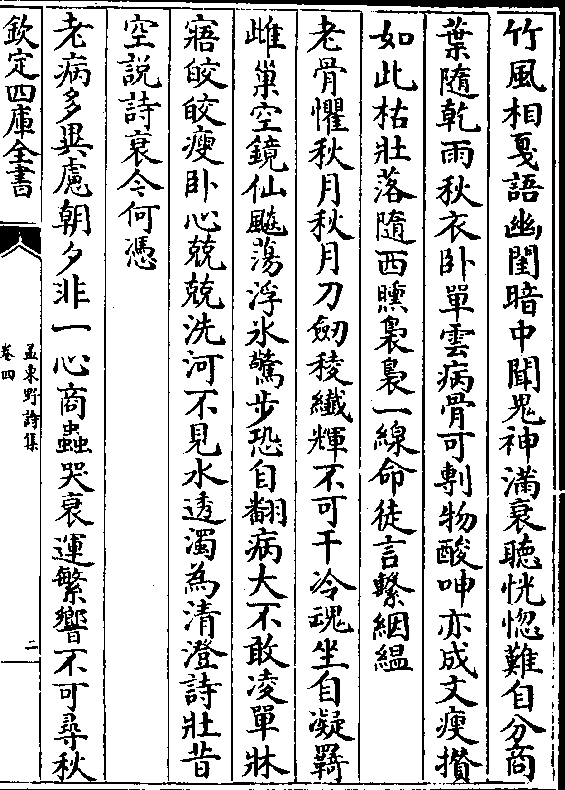 竹風相戛語幽閨暗中聞鬼神滿衰聽恍惚難自分商
葉隨乾雨秋衣卧單雲病骨可剸物酸呻亦成文瘦攢
如此枯壯落隨西曛裊裊一線命徒言繫絪緼
老骨懼秋月秋月刀劒稜纎輝不可干冷魂坐自凝羇
雌巢空鏡仙飈蕩浮氷驚步恐自翻病大不敢凌單牀
寤皎皎瘦卧心兢兢洗河不見水透濁為清澄詩壯昔
空說詩衰今何憑
老病多異慮朝夕非一心商蟲哭衰運繁響不可尋秋
欽定四庫全書
孟東野詩集
卷四
二